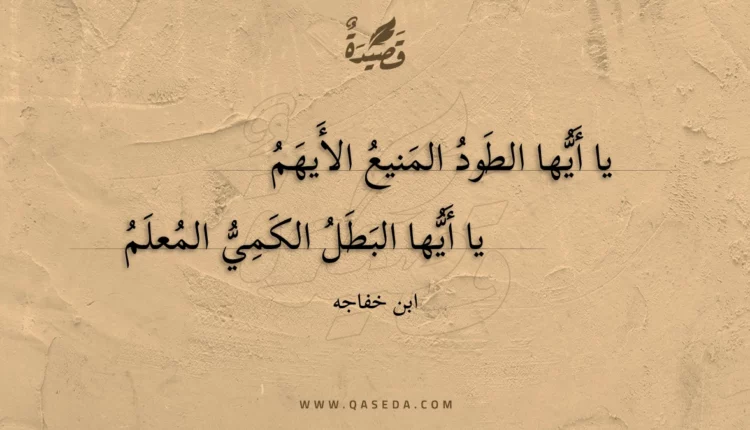 قَصيدَةٌ
يا أَيُّها الطَودُ المَنيعُ الأَيهَمُ
يا أَيُّها البَطَلُ الكَمِيُّ المُعلَمُ
ابن خفاجه
WWW.QASEDA.COM